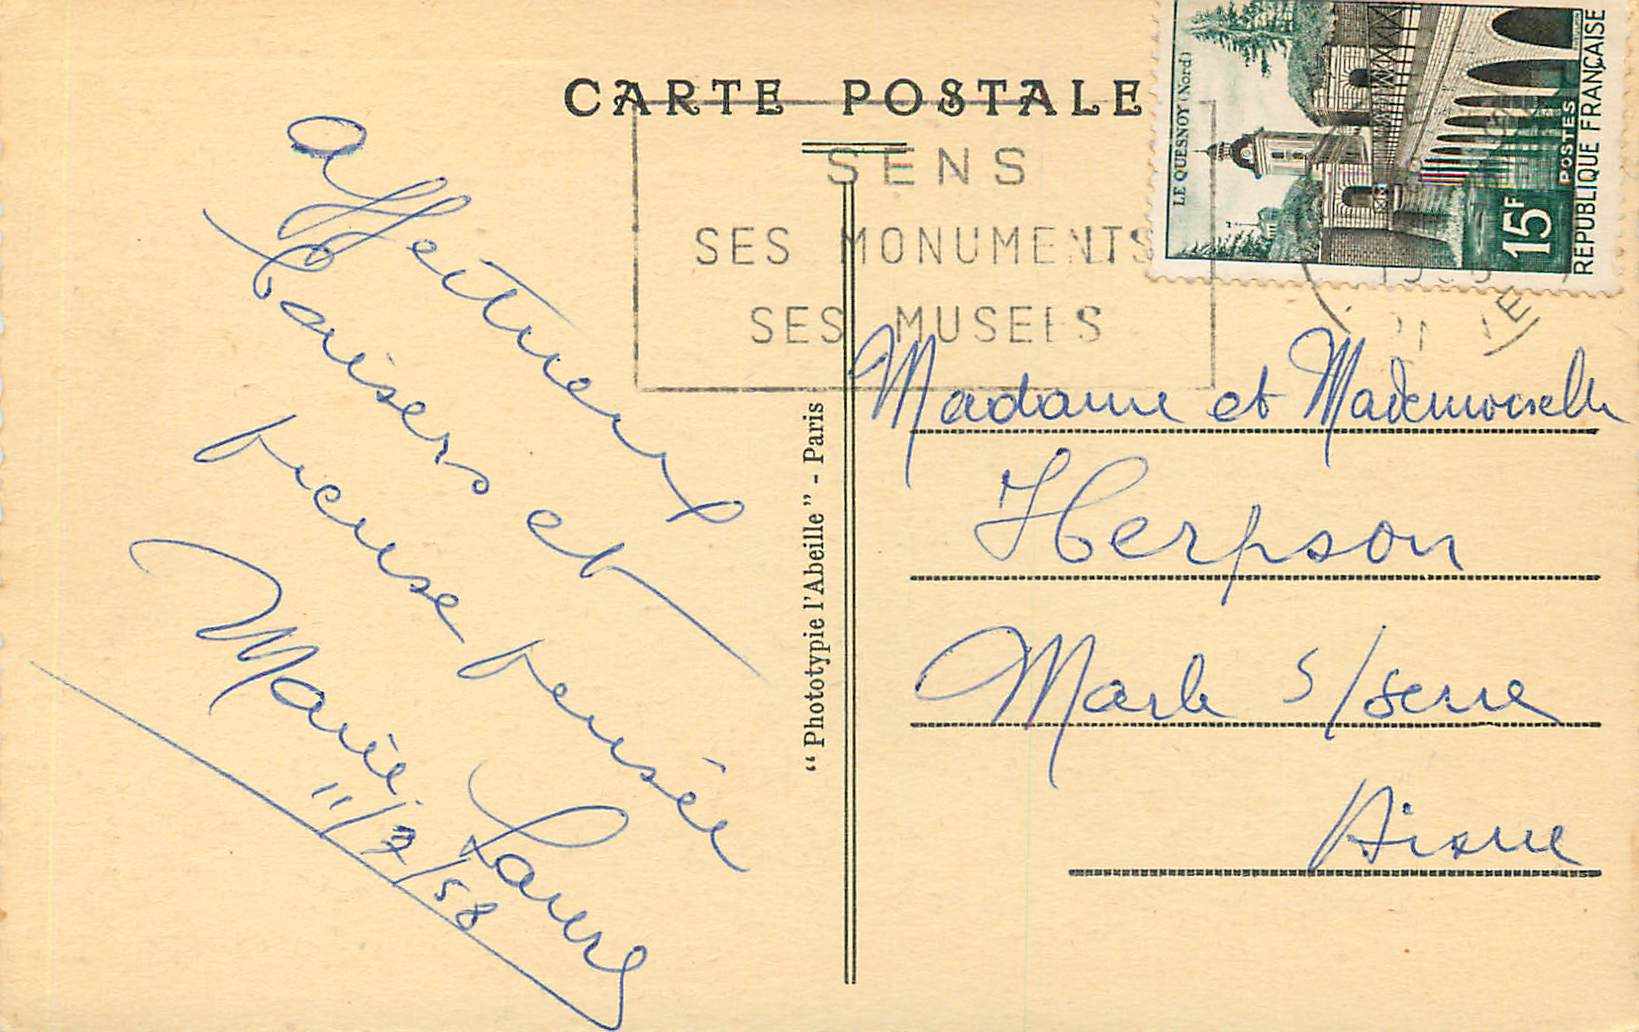 CARTE POSTALE
SENS
SES MONUMENTS
SES MUSEES
LE QUESNOY (Nord)
15F
POSTES
REPUBLIQUE FRANÇAISE
Affectueux
baisers et
pieuse pensée
Marie Laure
11/7/58
"Phototypie l'Abeille" - Paris
Madame et Mademoiselle
Herpson
Marle s/serre
Aisne